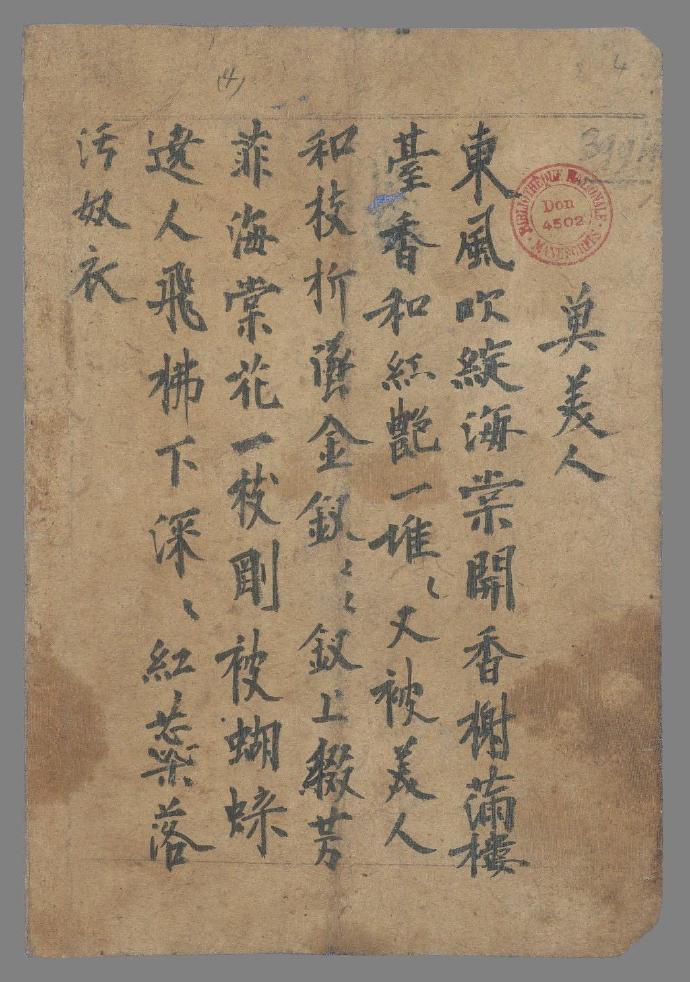 4
(4)
3994
BIBLIOTHÈQUE NATIONALE
Don
4502
MANUSCRITS
莫美人
東風吹綻海棠開香榭滿樓
臺香和紅艶一堆〻又被美人
和枝折墜金釵〻〻釵上綴芳
菲海棠花一枝剛被蝴蝶
遶人飛拂下深〻紅蕊落
污奴衣